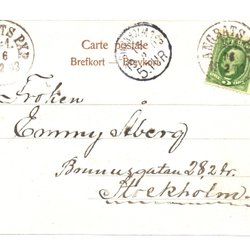 Carte postale
Brefkort — Brevkort
Fröken
Emmy Åberg
Brunnsgatan 28 2 tr.
Stockholm